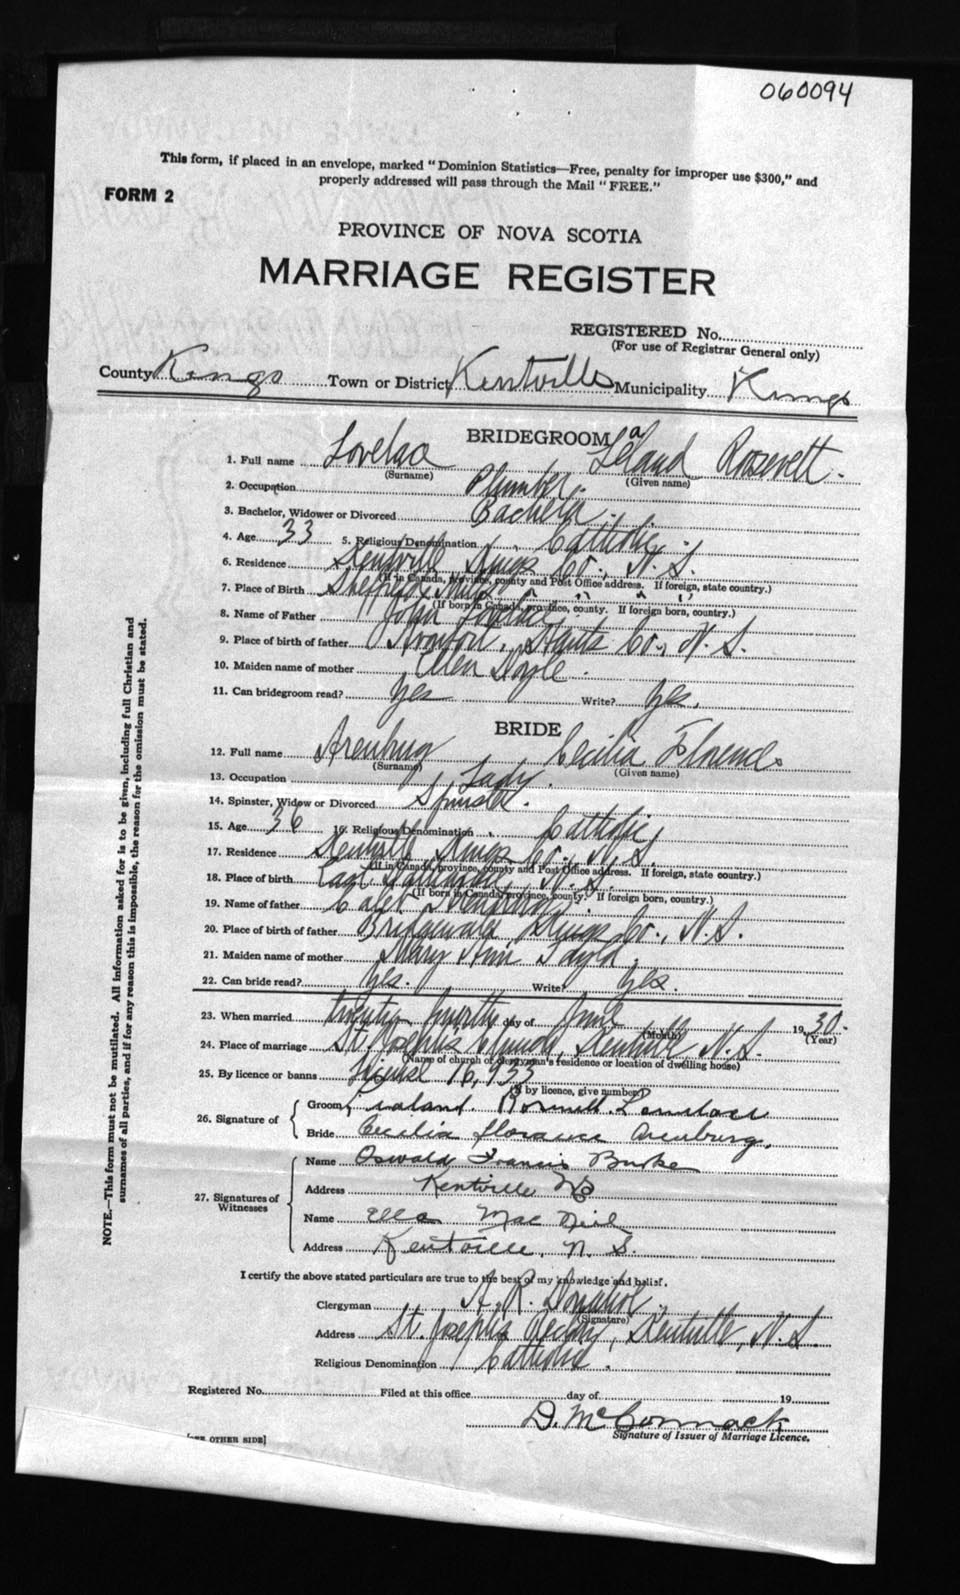 060094
This form, if placed in an envelope, marked "Dominion Statistics—Free, penalty for improper use $300," and
properly addressed will pass through the Mail "FREE."
FORM 2
PROVINCE OF NOVA SCOTIA
MARRIAGE REGISTER
REGISTERED No.
(For use of Registrar General only)
County Kings Town or District Kentville Municipality Kings
BRIDEGROOM
1. Full name Lovelace Leland Roosevelt.
(Surname) (Given name)
2. Occupation Plumber.
3. Bachelor, Widower or Divorced Bachelor.
4. Age 33 5. Religious Denomination Catholic.
6. Residence Kentville Kings Co., N. S.
(If in Canada, province, county and Post Office address. If foreign, state country.)
7. Place of Birth Sheffield Mills " " " "
(If born in Canada, province, county. If foreign born, country.)
8. Name of Father John Lovelace
9. Place of birth of father Hants Co., N. S.
10. Maiden name of mother Ellen Doyle.
11. Can bridegroom read? Yes Write? Yes.
BRIDE
12. Full name Arenburg Cecilia Florence
(Surname) (Given name)
13. Occupation Lady.
14. Spinster, Widow or Divorced Spinster.
15. Age 36 16. Religious Denomination Catholic
17. Residence Kentville Kings Co., N. S.
(If in Canada, province, county and Post Office address. If foreign, state country.)
18. Place of birth East N. S.
(If born in Canada, province, county. If foreign born, country.)
19. Name of father Caleb
20. Place of birth of father Kings Co., N. S.
21. Maiden name of mother Mary Ann
22. Can bride read? Yes. Write? Yes.
23. When married twenty fourth day of June 1930.
(Month) (Year)
24. Place of marriage St. Joseph's Church Kentville, N. S.
(Name of church or clergyman's residence or location of dwelling house)
25. By licence or banns License 16,933
(If by licence, give number)
26. Signature of
Groom Lealand Roosevelt Lovelace
Bride Cecilia Florence Arenburg.
27. Signatures of
Witnesses
Name Oswald Francis Burke
Address Kentville NS
Name Ella Mac Neil
Address Kentville, N. S.
I certify the above stated particulars are true to the best of my knowledge and belief.
Clergyman A. R. Donahoe
(Signature)
Address St. Joseph's Rectory, Kentville, N. S.
Religious Denomination Catholic.
Registered No. Filed at this office day of 19
D. McCormack
Signature of Issuer of Marriage Licence.
OTHER SIDE]
NOTE.—This form must not be mutilated. All information asked for is to be given, including full Christian and
surnames of all parties, and if for any reason this is impossible, the reason for the omission must be stated.